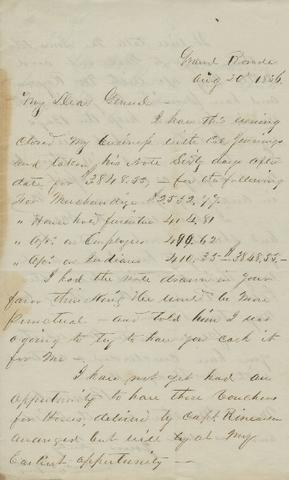 Grand Ronde
Aug 20th 1856
My Dear General —
I have this evening
closed my business with Jennings
and taking his Note Sixty days after
date for $3848.55, — for the following
for Merchandise $2552.97.
" House hold furniture 404.81
" Apts on Employees 490.62
" Apts on Indians 410.35 — $3848.55 —
I had the note drawn in your
favor thinking he would be more
Punctual — and told him I was
a going to try to have you cash it
for me —
I have not yet had an
opportunity to have those vouchers
for Horses, delived by Capt. Rinearson
arranged but will try at my
Earliest opportunity —